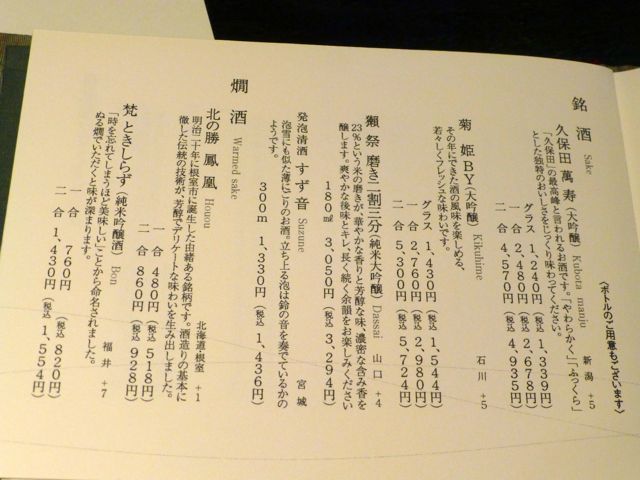 (ボトルのご用意もございます)
銘酒 Sake
久保田 萬寿(大吟醸) Kubota manju 新潟 +5
「久保田」の最高峰と言われるお酒です。「やわらかく」「ふっくら」
とした独特のおいしさをじっくり味わってください。
グラス 1,240円(税込 1,339円)
一合 2,480円(税込 2,678円)
二合 4,570円(税込 4,935円)
菊姫BY(大吟醸) Kikuhime 石川 +5
その年にできた酒の風味を楽しめる、
若々しくフレッシュな味わいです。
グラス 1,430円(税込 1,544円)
一合 2,760円(税込 2,980円)
二合 5,300円(税込 5,724円)
獺祭 磨き二割三分(純米大吟醸) Dassai 山口 +4
23%という米の磨きが、華やかな香りと芳醇な味、濃密な含み香を
醸します。爽やかな後味とキレ、長く続く余韻をお楽しみください
180㎖ 3,050円(税込 3,294円)
発泡清酒 すず音 Suzune 宮城
泡雪にも似た薄にごりのお酒。立ち上る泡は鈴の音を奏でているかの
ようです。
300m 1,330円(税込 1,436円)
燗酒 Warmed sake
北の勝 鳳凰 Houou 北海道根室 +1
明治二十年に根室市に誕生した由緒ある銘柄です。酒造りの基本に
徹した伝統の技術が、芳醇でデリケートな味わいを生み出しました。
一合 480円(税込 518円)
二合 860円(税込 928円)
梵 ときしらず(純米吟醸酒) Bon 福井 +7
「時を忘れてしまうほど美味しい」ことから命名されました。
ぬる燗でいただくと味が深まります。
一合 760円(税込 820円)
二合 1,430円(税込 1,554円)